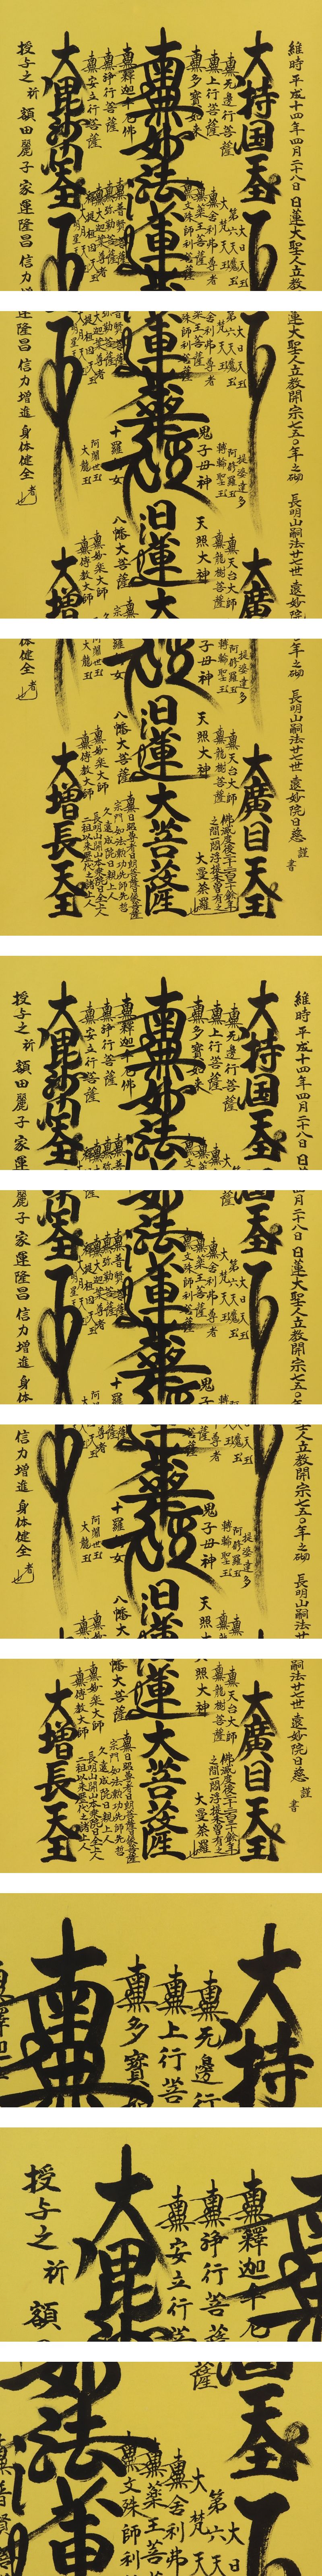 維時平成十四年四月二十八日 日蓮大聖人立教開宗七五〇年之砌 長明山嗣法廿七世 遠妙院日慈 謹書
大持国天王
大廣目天王
南無無邊行菩薩
南無上行菩薩
南無多寳如来
南無妙法蓮華経
日蓮大菩薩
南無釋迦牟尼佛
南無浄行菩薩
南無安立行菩薩
大毘沙門天王
大増長天王
大日天王
第六天魔王
大梵天王
南無舎利弗尊者
南無薬王菩薩
南無文殊師利菩薩
南無普賢菩薩
南無弥勒菩薩
南無大迦葉尊者
提婆達多
阿修羅王
轉輪聖王
鬼子母神
十羅刹女
阿闍世王
大龍王
南無天台大師
南無龍樹菩薩
天照大神
八幡大菩薩
南無妙楽大師
南無傳教大師
佛滅度後二千二百二十餘年
之間閻浮提未曽有之
大曼荼羅
久遠成院日親上人
授与之 祈 額田麗子 家運隆昌 信力増進 身体健全 者也